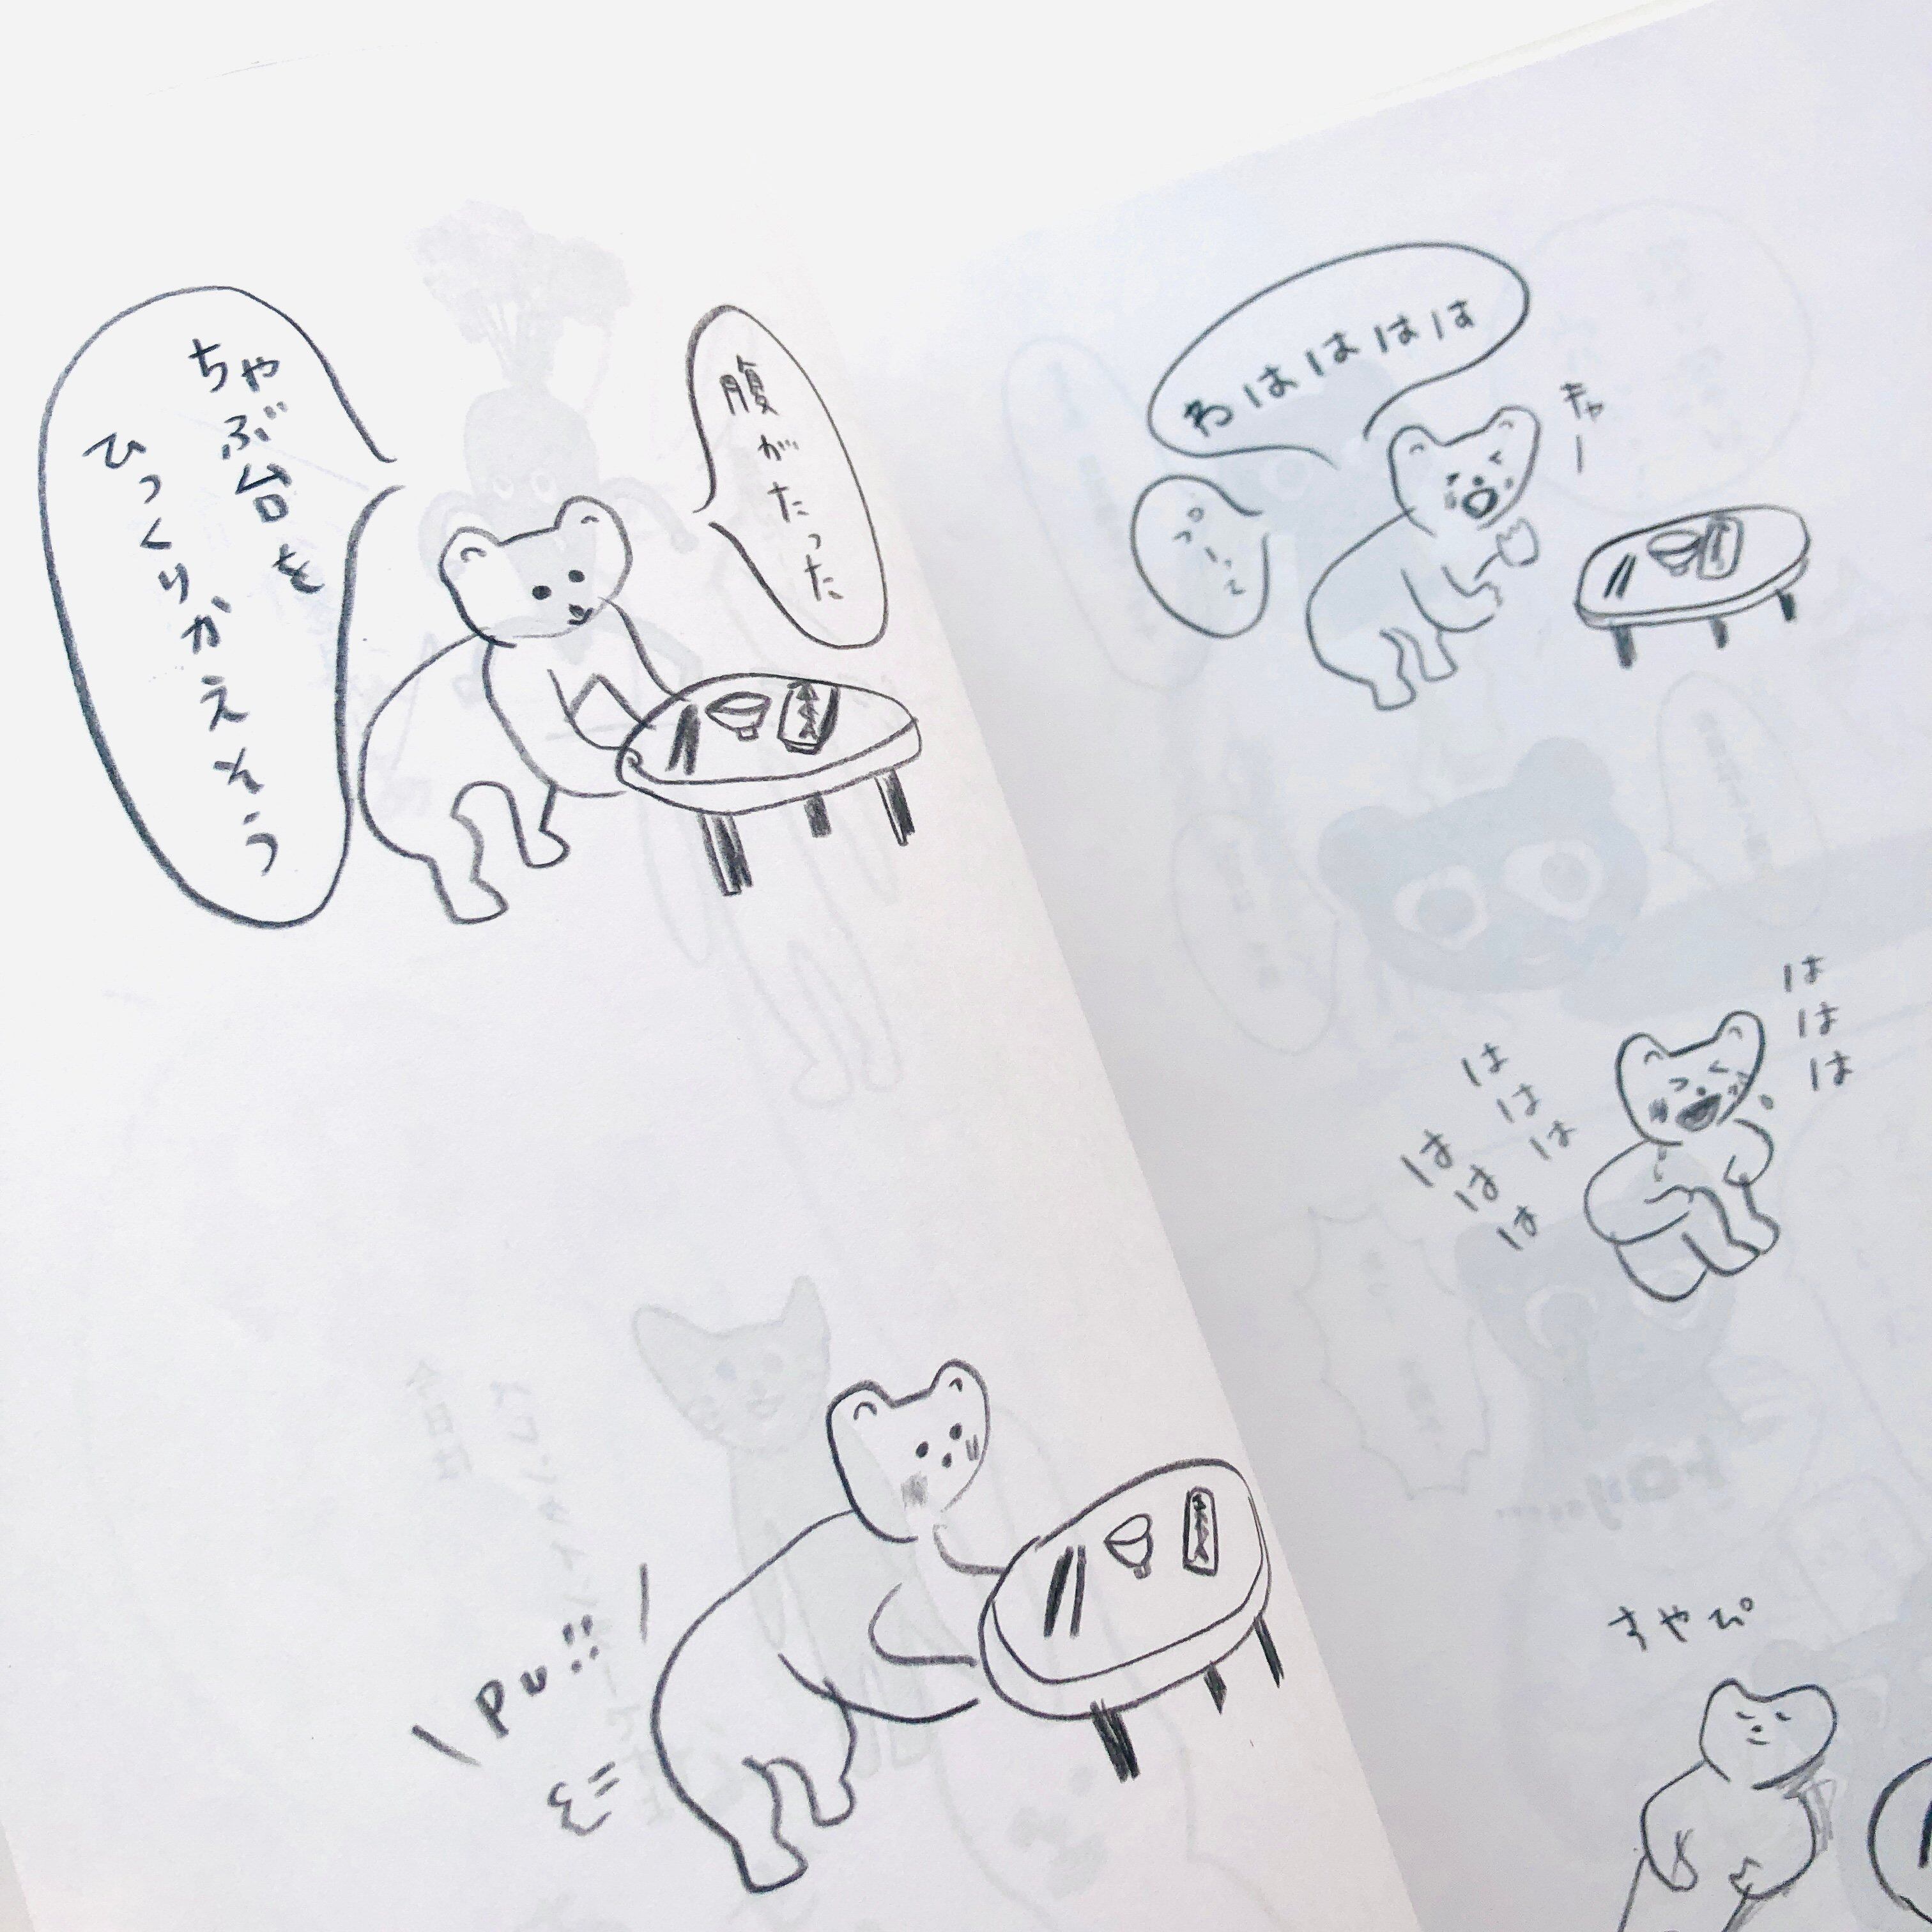 腹がたった
ちゃぶ台を
ひっくりかえそう
pu!!
わはははは
ぷーって
きゃー
ははは
ははは
ははは
すやぴ